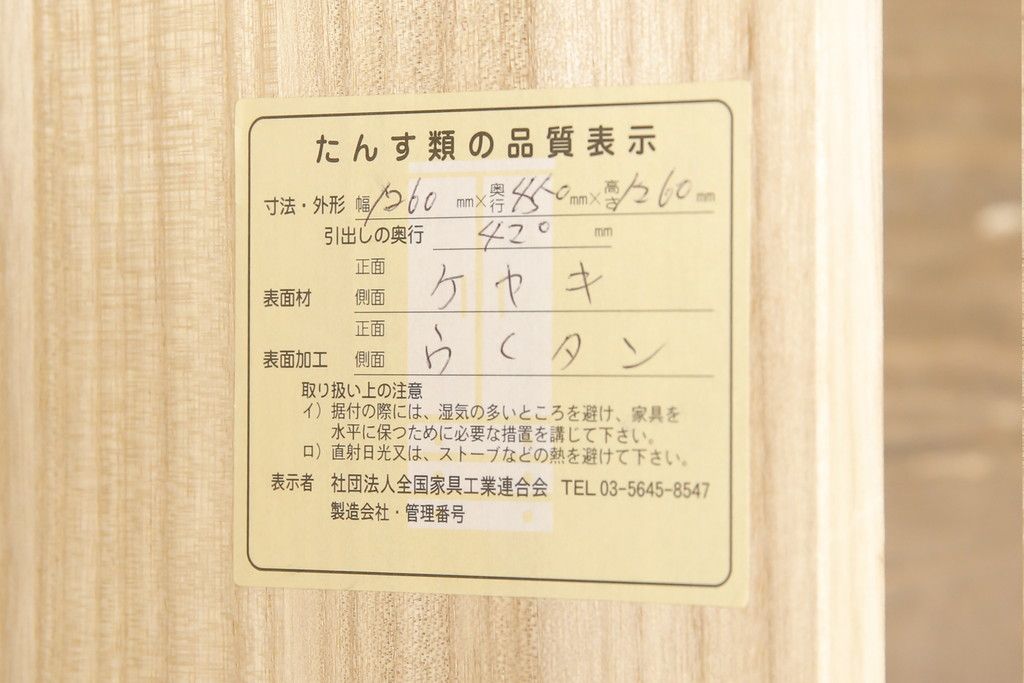 たんす類の品質表示
寸法・外形 幅 1260 mm× 奥行 450 mm× 高さ 1260 mm
引出しの奥行 420 mm
正面
表面材 側面 ケヤキ
正面
表面加工 側面 ウレタン
取り扱い上の注意
イ）据付の際には、湿気の多いところを避け、家具を
水平に保つために必要な措置を講じて下さい。
ロ）直射日光又は、ストーブなどの熱を避けて下さい。
表示者 社団法人全国家具工業連合会 TEL 03-5645-8547
製造会社・管理番号